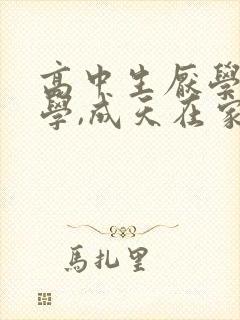 高中生厭學
學,成天在家
馬扎里